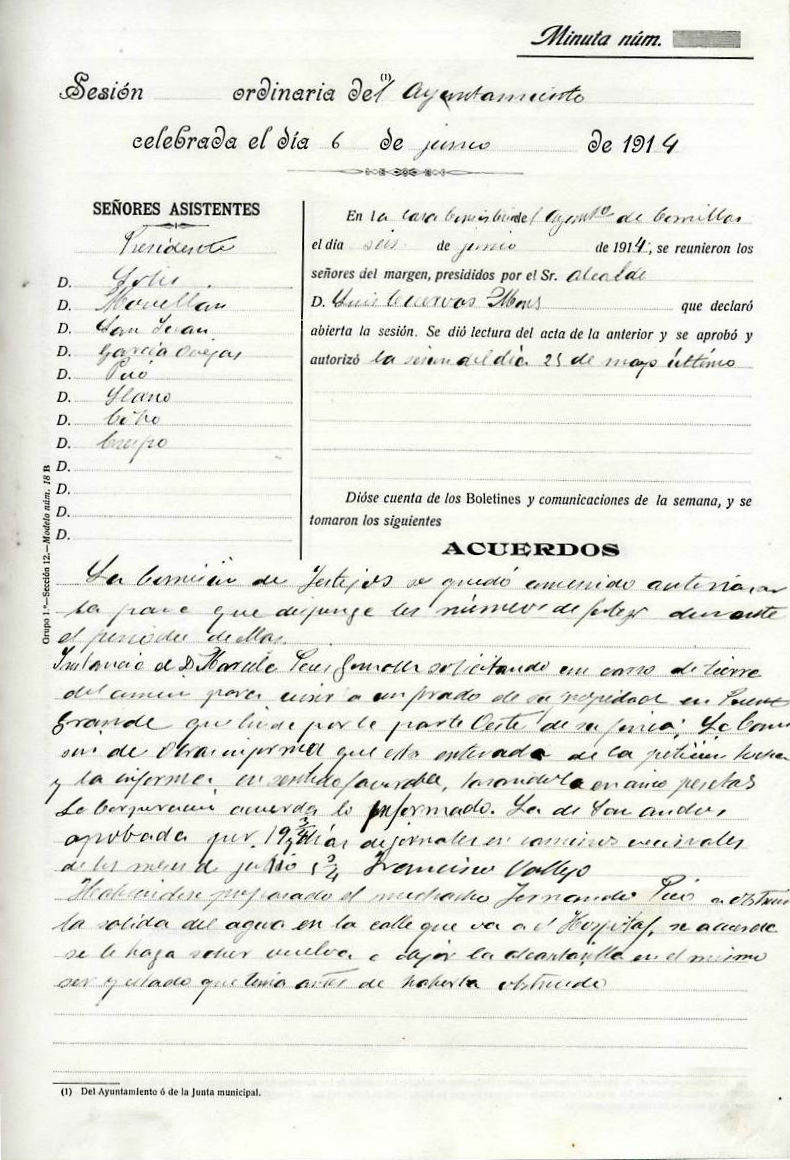 Minuta núm.
Sesión ordinaria del (1) Ayuntamiento
celebrada el día 6 de junio de 1914
SEÑORES ASISTENTES
Presidente
D. Solis
D. Movellan
D. San Juan
D. García Ovejas
D. Pío
D. Llano
D.
D. Crespo
D.
D.
D.
D.
En la Casa Consistorial del Ayuntº de Comillas
el día seis de junio de 1914, se reunieron los
señores del margen, presididos por el Sr. Alcalde
D. Luis Cuevas que declaró
abierta la sesión. Se dió lectura del acta de la anterior y se aprobó y
autorizó la sesion del día 25 de mayo último
Dióse cuenta de los Boletines y comunicaciones de la semana, y se
tomaron los siguientes
ACUERDOS
La Comisión de Festejos se quedó autorizar
la para que disponga los números de festejos durante
el periodo de ellas.
Instancia de D. Marcelo solicitando un carro de tierra
del comun para unir a un prado de su propiedad en
Grande que linda por la parte Oeste de su finca; La Comi
sion de Obras informa que esta enterada de la peticion
y la informa en sentido favorable, tasandola en cinco pesetas
La Corporacion acuerda lo informado. La de San
aprobada por 19 días de jornales en caminos vecinales
de los meses de Francisco Vallejo
Habiendose preparado el muchacho Fernando Pío a obstruir
la salida del agua en la calle que va a el Hospital, se acuerda
se le haga saber vuelva a dejar la alcantarilla en el mismo
ser y estado que tenia antes de haberla obstruido
Grupo 1.º—Sección 12.—Modelo núm. 18 B
(1) Del Ayuntamiento ó de la Junta municipal.